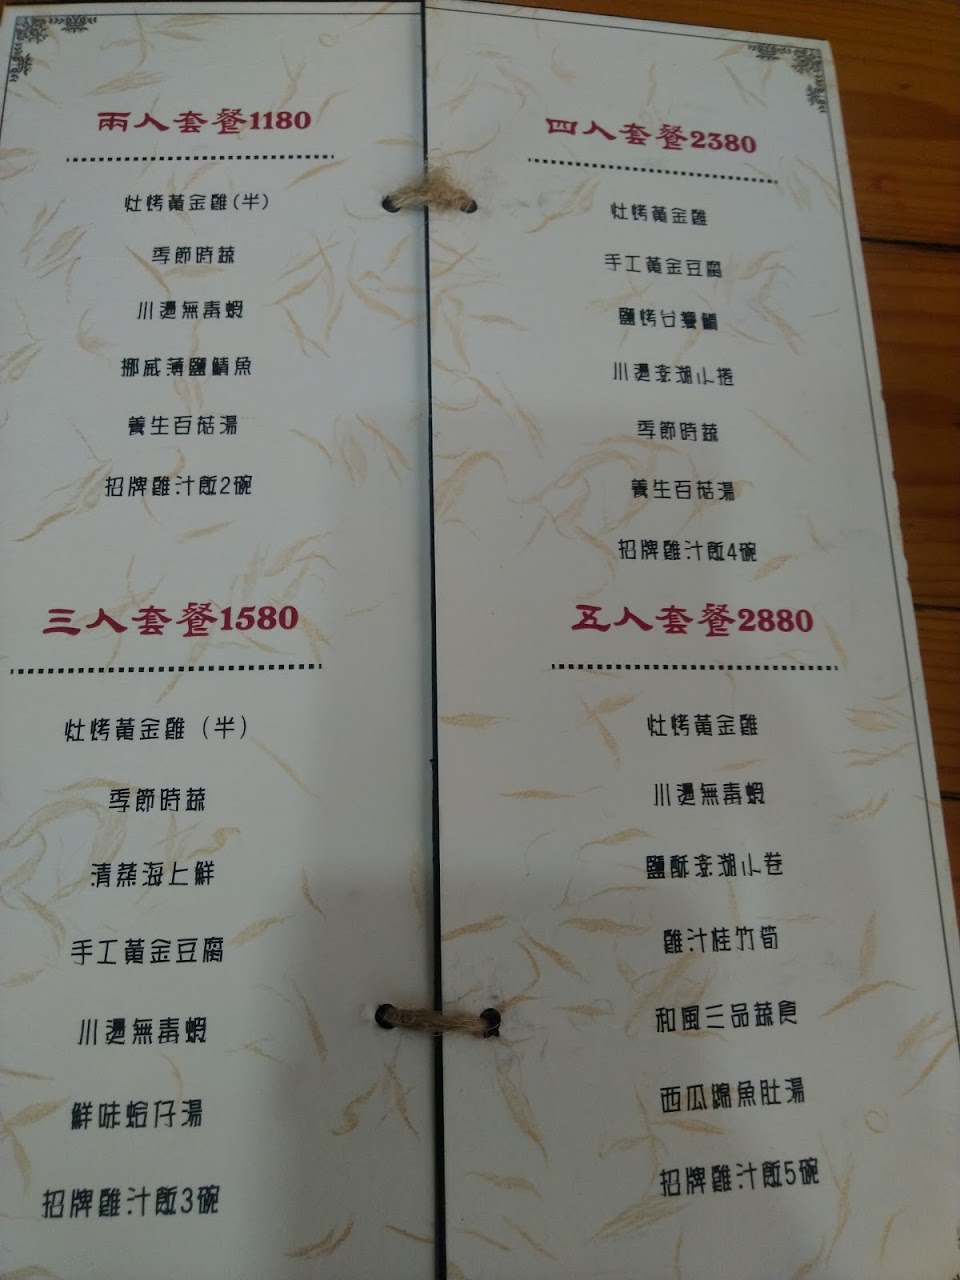 兩人套餐1180
灶烤黃金雞(半)
季節時蔬
川燙無毒蝦
挪威薄鹽鯖魚
養生百菇湯
招牌雞汁飯2碗
三人套餐1580
灶烤黃金雞（半）
季節時蔬
清蒸海上鮮
手工黃金豆腐
川燙無毒蝦
鮮味蛤仔湯
招牌雞汁飯3碗
四人套餐2380
灶烤黃金雞
手工黃金豆腐
鹽烤台灣鯛
川燙澎湖小捲
季節時蔬
養生百菇湯
招牌雞汁飯4碗
五人套餐2880
灶烤黃金雞
川燙無毒蝦
鹽酥澎湖小卷
雞汁桂竹筍
和風三品蔬食
西瓜綿魚肚湯
招牌雞汁飯5碗